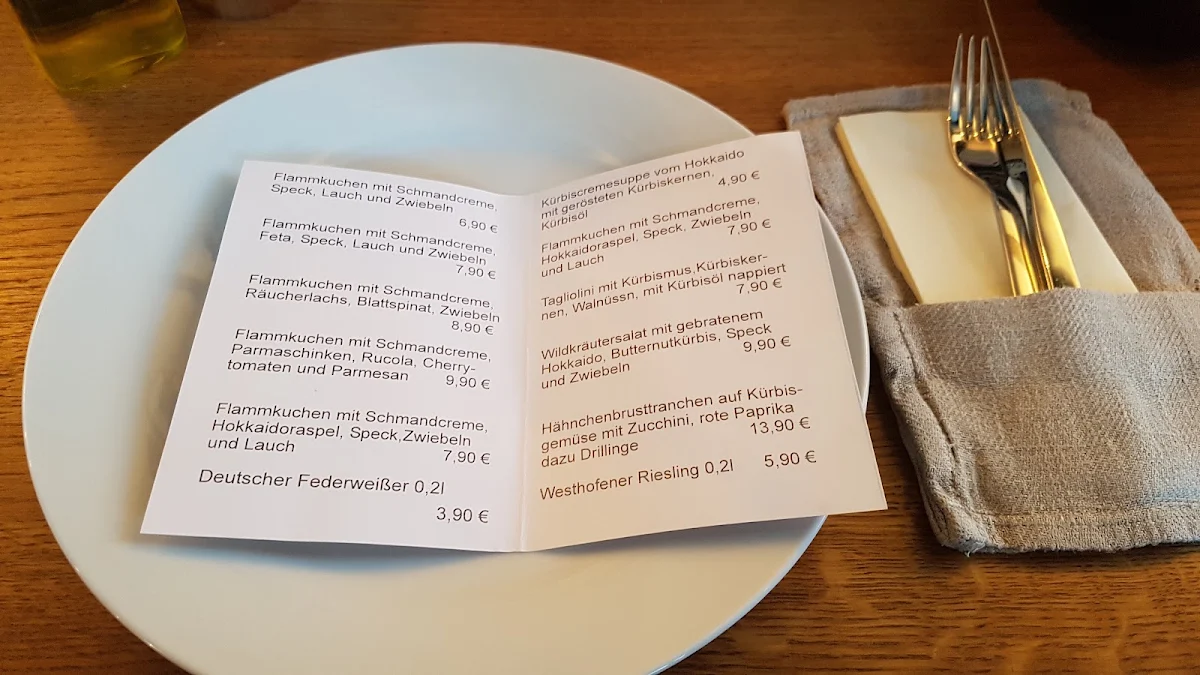 Flammkuchen mit Schmandcreme,
Speck, Lauch und Zwiebeln
6,90 €
Flammkuchen mit Schmandcreme,
Feta, Speck, Lauch und Zwiebeln
7,90 €
Flammkuchen mit Schmandcreme,
Räucherlachs, Blattspinat, Zwiebeln
8,90 €
Flammkuchen mit Schmandcreme,
Parmaschinken, Rucola, Cherry-
tomaten und Parmesan 9,90 €
Flammkuchen mit Schmandcreme,
Hokkaidoraspel, Speck,Zwiebeln
und Lauch 7,90 €
Deutscher Federweißer 0,2l
3,90 €
Kürbiscremesuppe vom Hokkaido
mit gerösteten Kürbiskernen,
Kürbisöl 4,90 €
Flammkuchen mit Schmandcreme,
Hokkaidoraspel, Speck, Zwiebeln
und Lauch 7,90 €
Tagliolini mit Kürbismus,Kürbisker-
nen, Walnüssn, mit Kürbisöl nappiert
7,90 €
Wildkräutersalat mit gebratenem
Hokkaido, Butternutkürbis, Speck
und Zwiebeln 9,90 €
Hähnchenbrusttranchen auf Kürbis-
gemüse mit Zucchini, rote Paprika
dazu Drillinge 13,90 €
Westhofener Riesling 0,2l 5,90 €